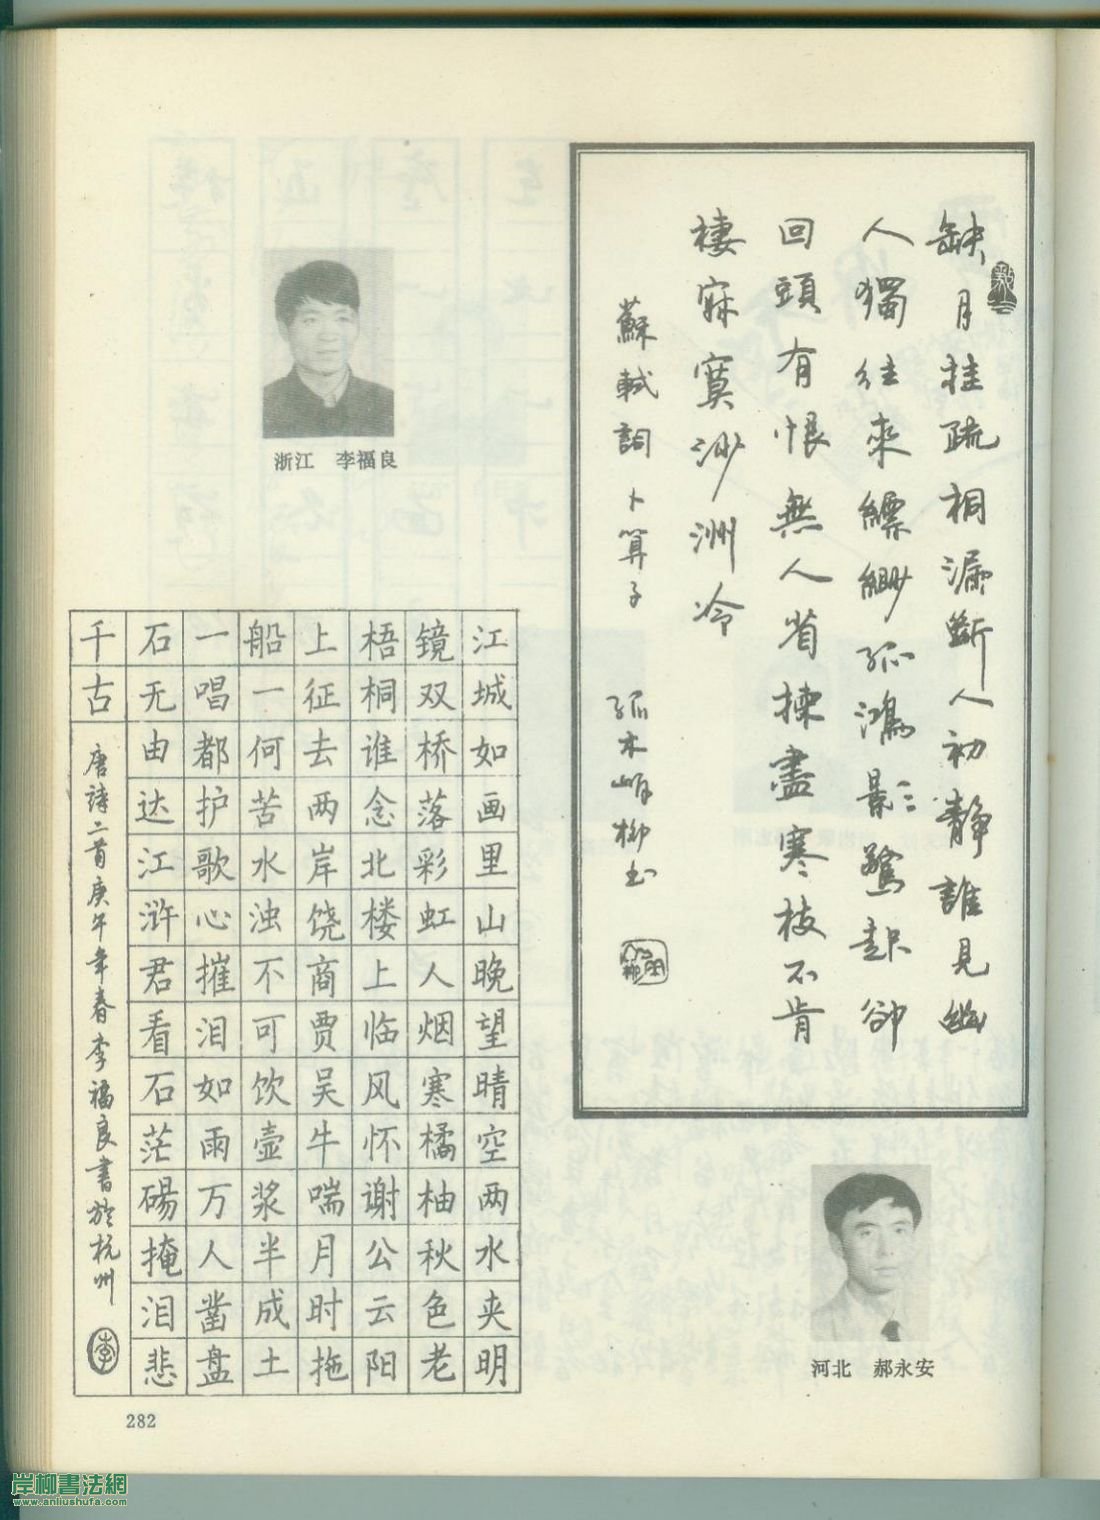 缺月挂疏桐漏斷人初靜誰見幽
人獨往來縹緲孤鴻影驚起卻
回頭有恨無人省揀盡寒枝不肯
棲寂寞沙洲冷
蘇軾詞 卜算子 孤木岸柳书
河北 郝永安
浙江 李福良
江城如画里山晚望晴空两水夹明
镜双桥落彩虹人烟寒橘柚秋色老
梧桐谁念北楼上临风怀谢公云阳
上征去两岸饶商贾吴牛喘月时拖
船一何苦水浊不可饮壶浆半成土
一唱都护歌心摧泪如雨万人凿盘
石无由达江浒君看石茫砀掩泪悲
千古
唐詩二首庚午年春李福良書於杭州
李
282
岸柳書法網
www.anliushufa.com